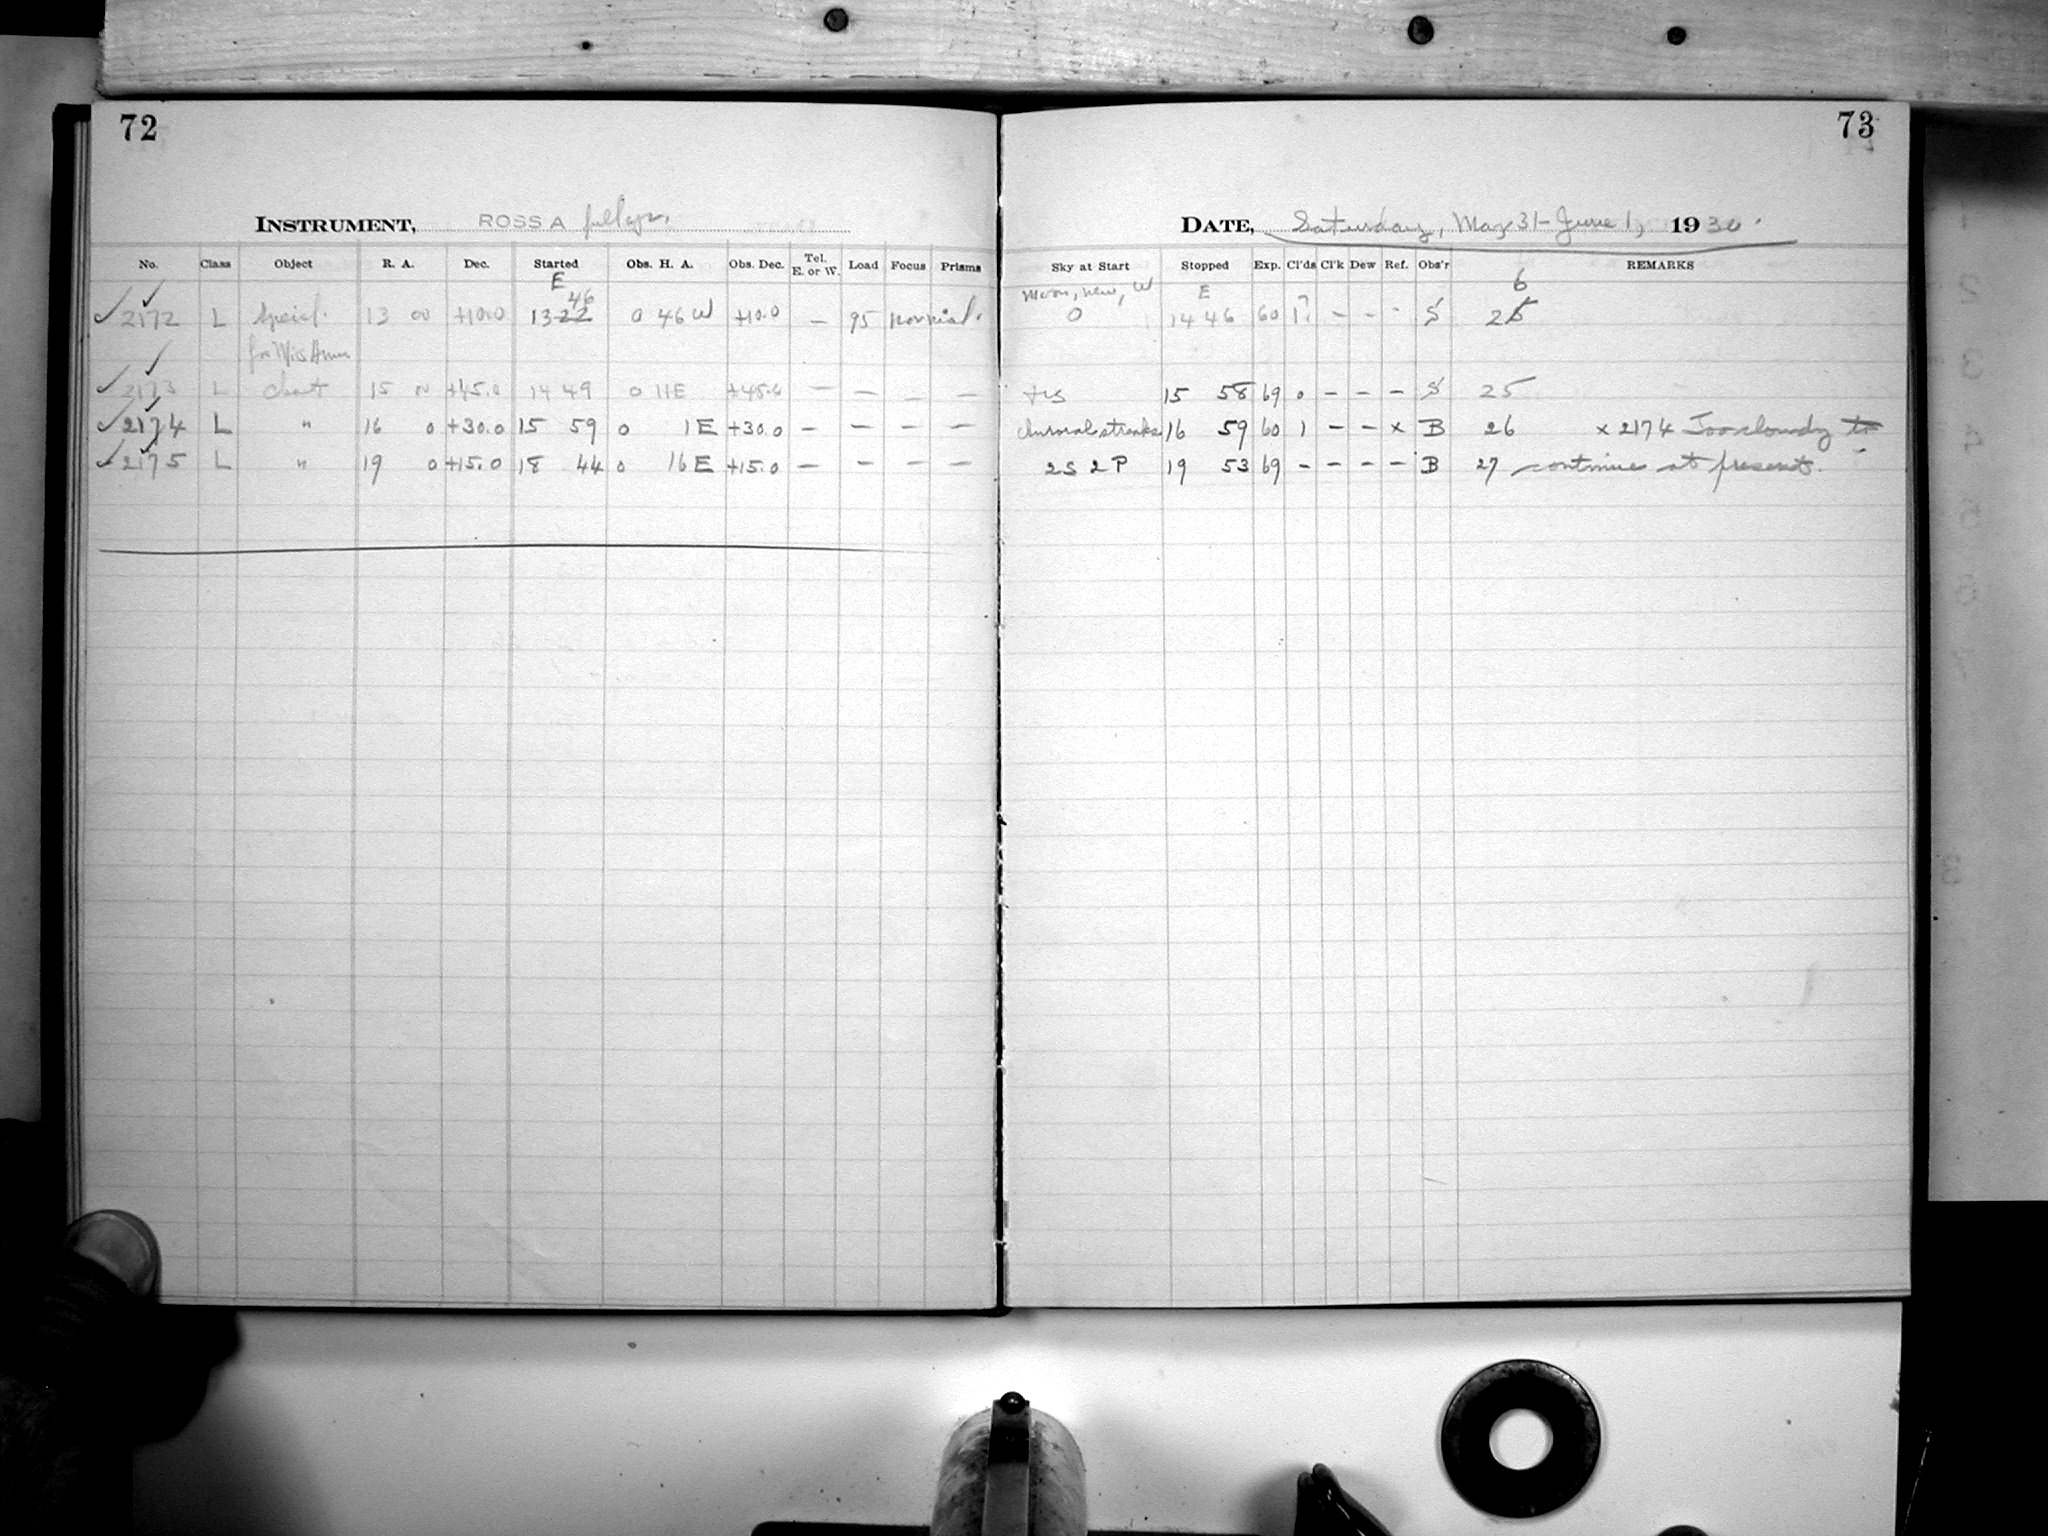 72
INSTRUMENT, ROSS A
No. Class Object R. A. Dec. Started Obs. H. A. Obs. Dec. Tel. E. or W. Load Focus Prisms
E
2172 L Special 13 00 +10.0 13 22 46 0 46 W +10.0 — 95 normal.
for Miss
2173 L Chart 15 00 +45.0 14 49 0 11E +45.0 — — — —
2174 L " 16 0 +30.0 15 59 0 1 E +30.0 — — — —
2175 L " 19 0 +15.0 18 44 0 16 E +15.0 — — — —
73
DATE, Saturday, May 31 - June 1, 1930.
Sky at Start Stopped Exp. Cl'ds Cl'k Dew Ref. Obs'r REMARKS
Moon, new, W E 6
0 14 46 60 1? - - - S 25
15 58 69 0 - - - S 25
Auroral streaks 16 59 60 1 - - x B 26 x 2174 Too cloudy to
2S 2P 19 53 69 - - - - B 27 continue at present.